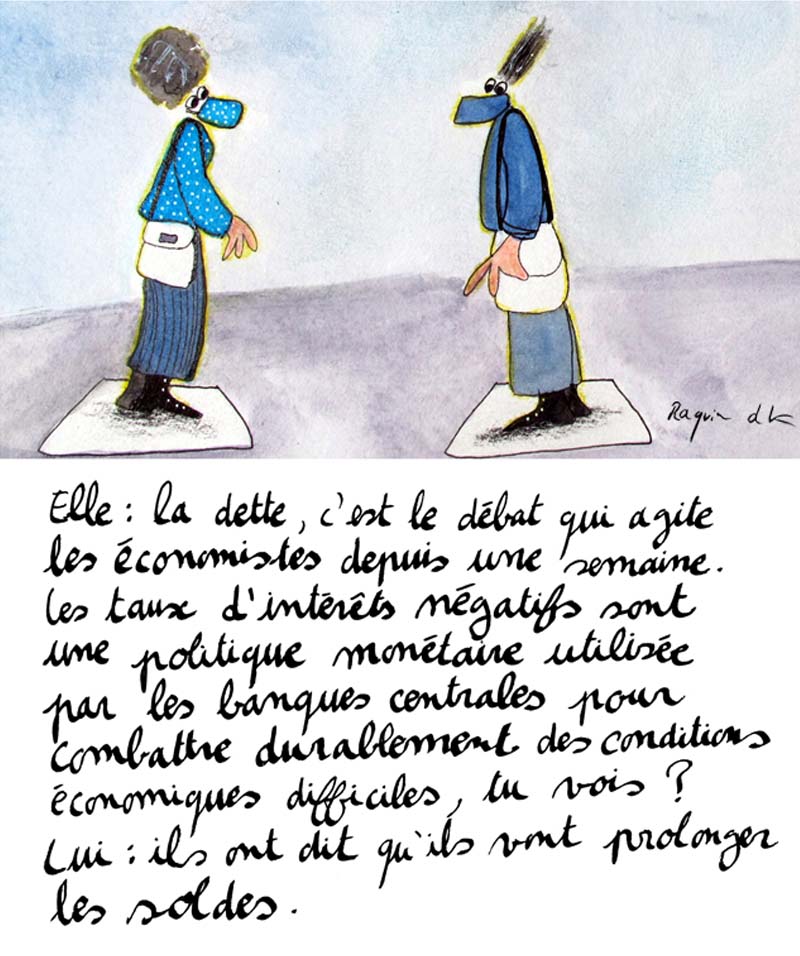 Raquin dk
Elle : la dette, c'est le débat qui agite
les économistes depuis une semaine.
Les taux d'intérêts négatifs sont
une politique monétaire utilisée
par les banques centrales pour
combattre durablement des conditions
économiques difficiles, tu vois ?
Lui : ils ont dit qu'ils vont prolonger
les soldes.